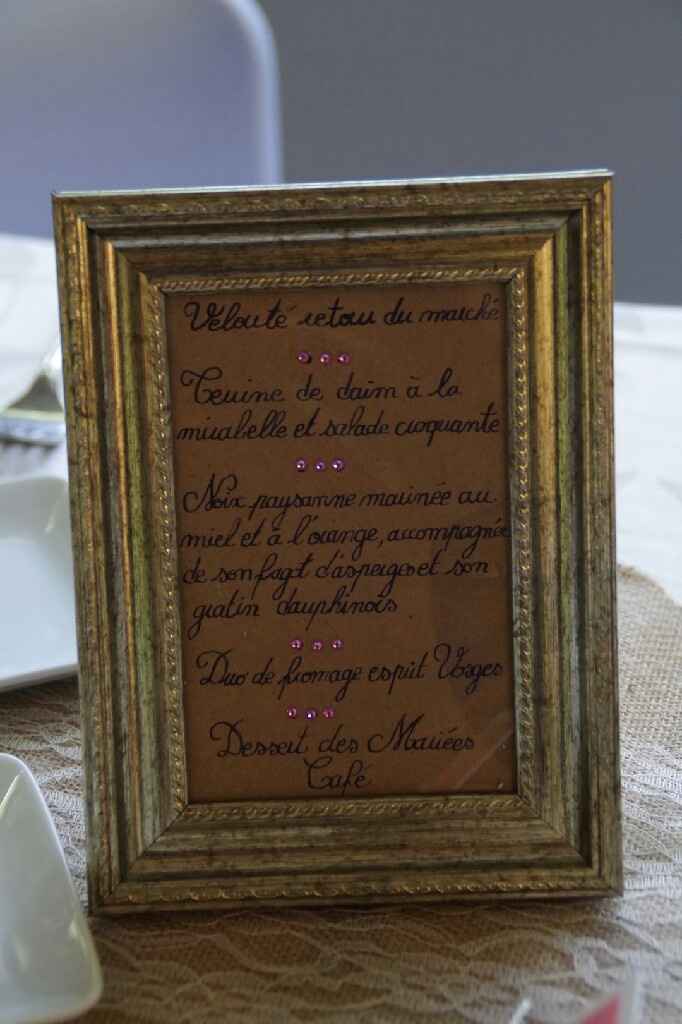 Velouté retour du marché
Terrine de daim à la
mirabelle et salade croquante
Noix paysanne marinée au
miel et à l'orange, accompagnée
de son fagot d'asperges et son
gratin dauphinois.
Duo de fromage esprit Vosges
Dessert des Mariées
Café